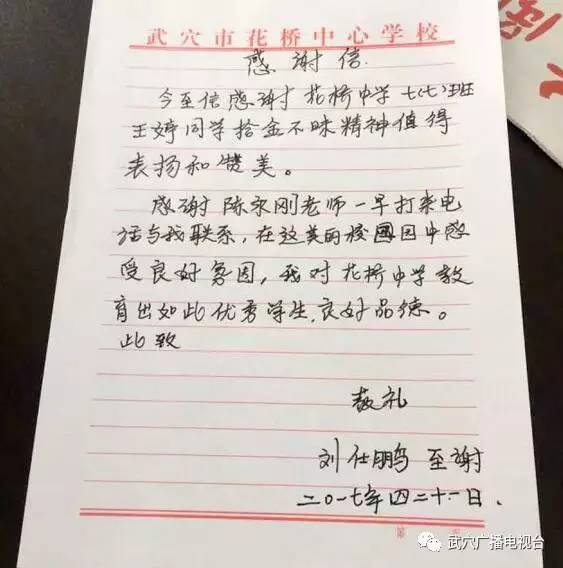 武穴市花桥中心学校
感谢信.
今至信感谢花桥中学七(七)班
王婷同学拾金不昧精神值得
表扬和赞美。
感谢陈永刚老师一早打来电
话与我联系,在这美的校园中感
受良好氛围,我对花桥中学教
育出如此优秀学生.良好品德。
此致
敬礼
刘仕鹏 至谢
二〇一七年四二十一日.
第
武穴广播电视台